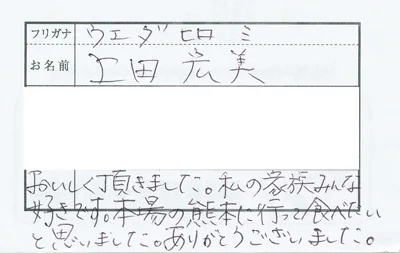 フリガナ ウエダ ヒロミ
お名前 工田 宏美
おいしく頂きました。私の家族みんな
好きです。本場の熊本に行って食べたい
と思いました。ありがとうございました。